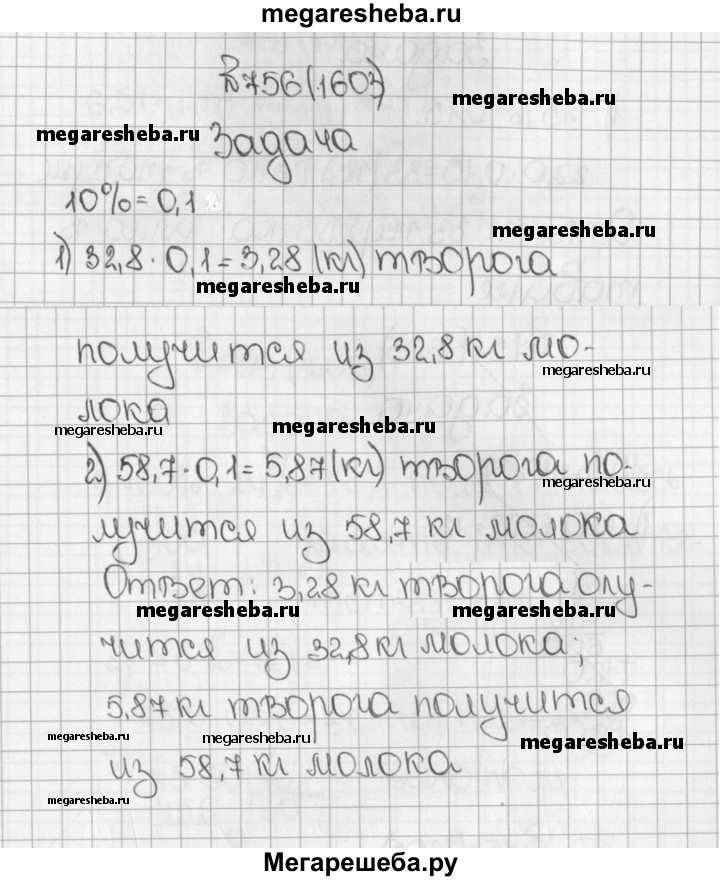 megaresheba.ru
№756(1603)
megaresheba.ru
megaresheba.ru
Задача
10%=0,1
megaresheba.ru
1) 32,8·0,1=3,28 (кг) творога
megaresheba.ru
получится из 32,8 кг мо-
megaresheba.ru
лока
megaresheba.ru
megaresheba.ru
2) 58,7·0,1=5,87(кг) творога по-
megaresheba.ru
лучится из 58,7 кг молока
Ответ: 3,28 кг творога олу-
megaresheba.ru
megaresheba.ru
чится из 32,8кг молока;
5,87 кг творога получится
megaresheba.ru
megaresheba.ru
megaresheba.ru
из 58,7 кг молока
megaresheba.ru
Мегарешеба.ру